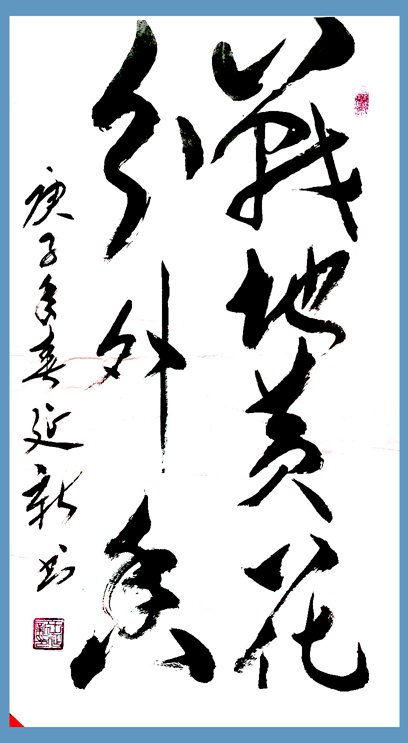 戰地黄花
分外香
庚子年春延新书